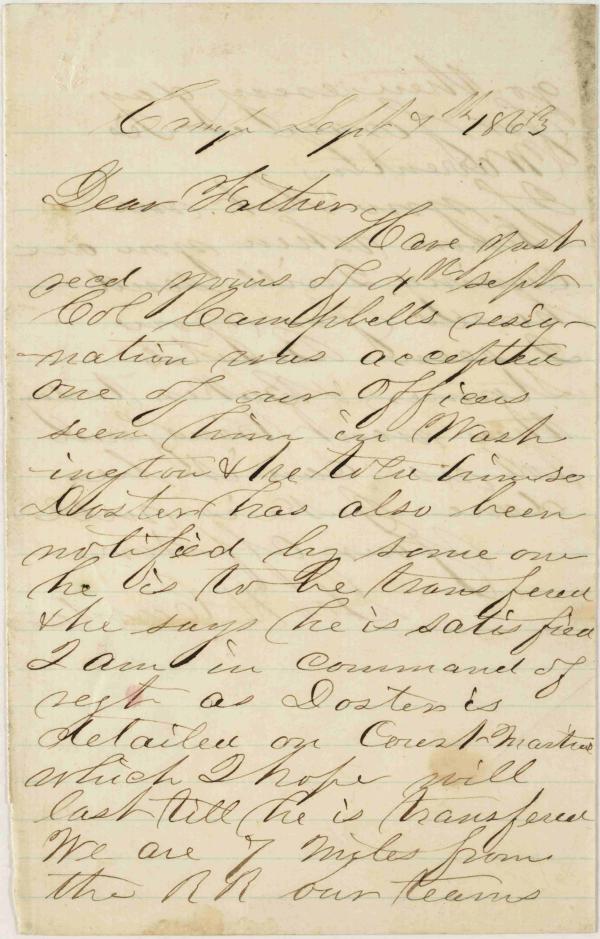 Camp Sept 8th 1863
Dear Father
Have just
recd yours of 4th sept
Col Campbells resig-
-nation was accepted
one of our officers
seen him in Wash
-ington & he told him so
Doster has also been
notified by some one
he is to be transfered
& he says he is satisfied
I am in command of
regt as Doster is
detailed on Court Martial
which I hope will
last till he is transfered
We are 7 miles from
the RR our teams